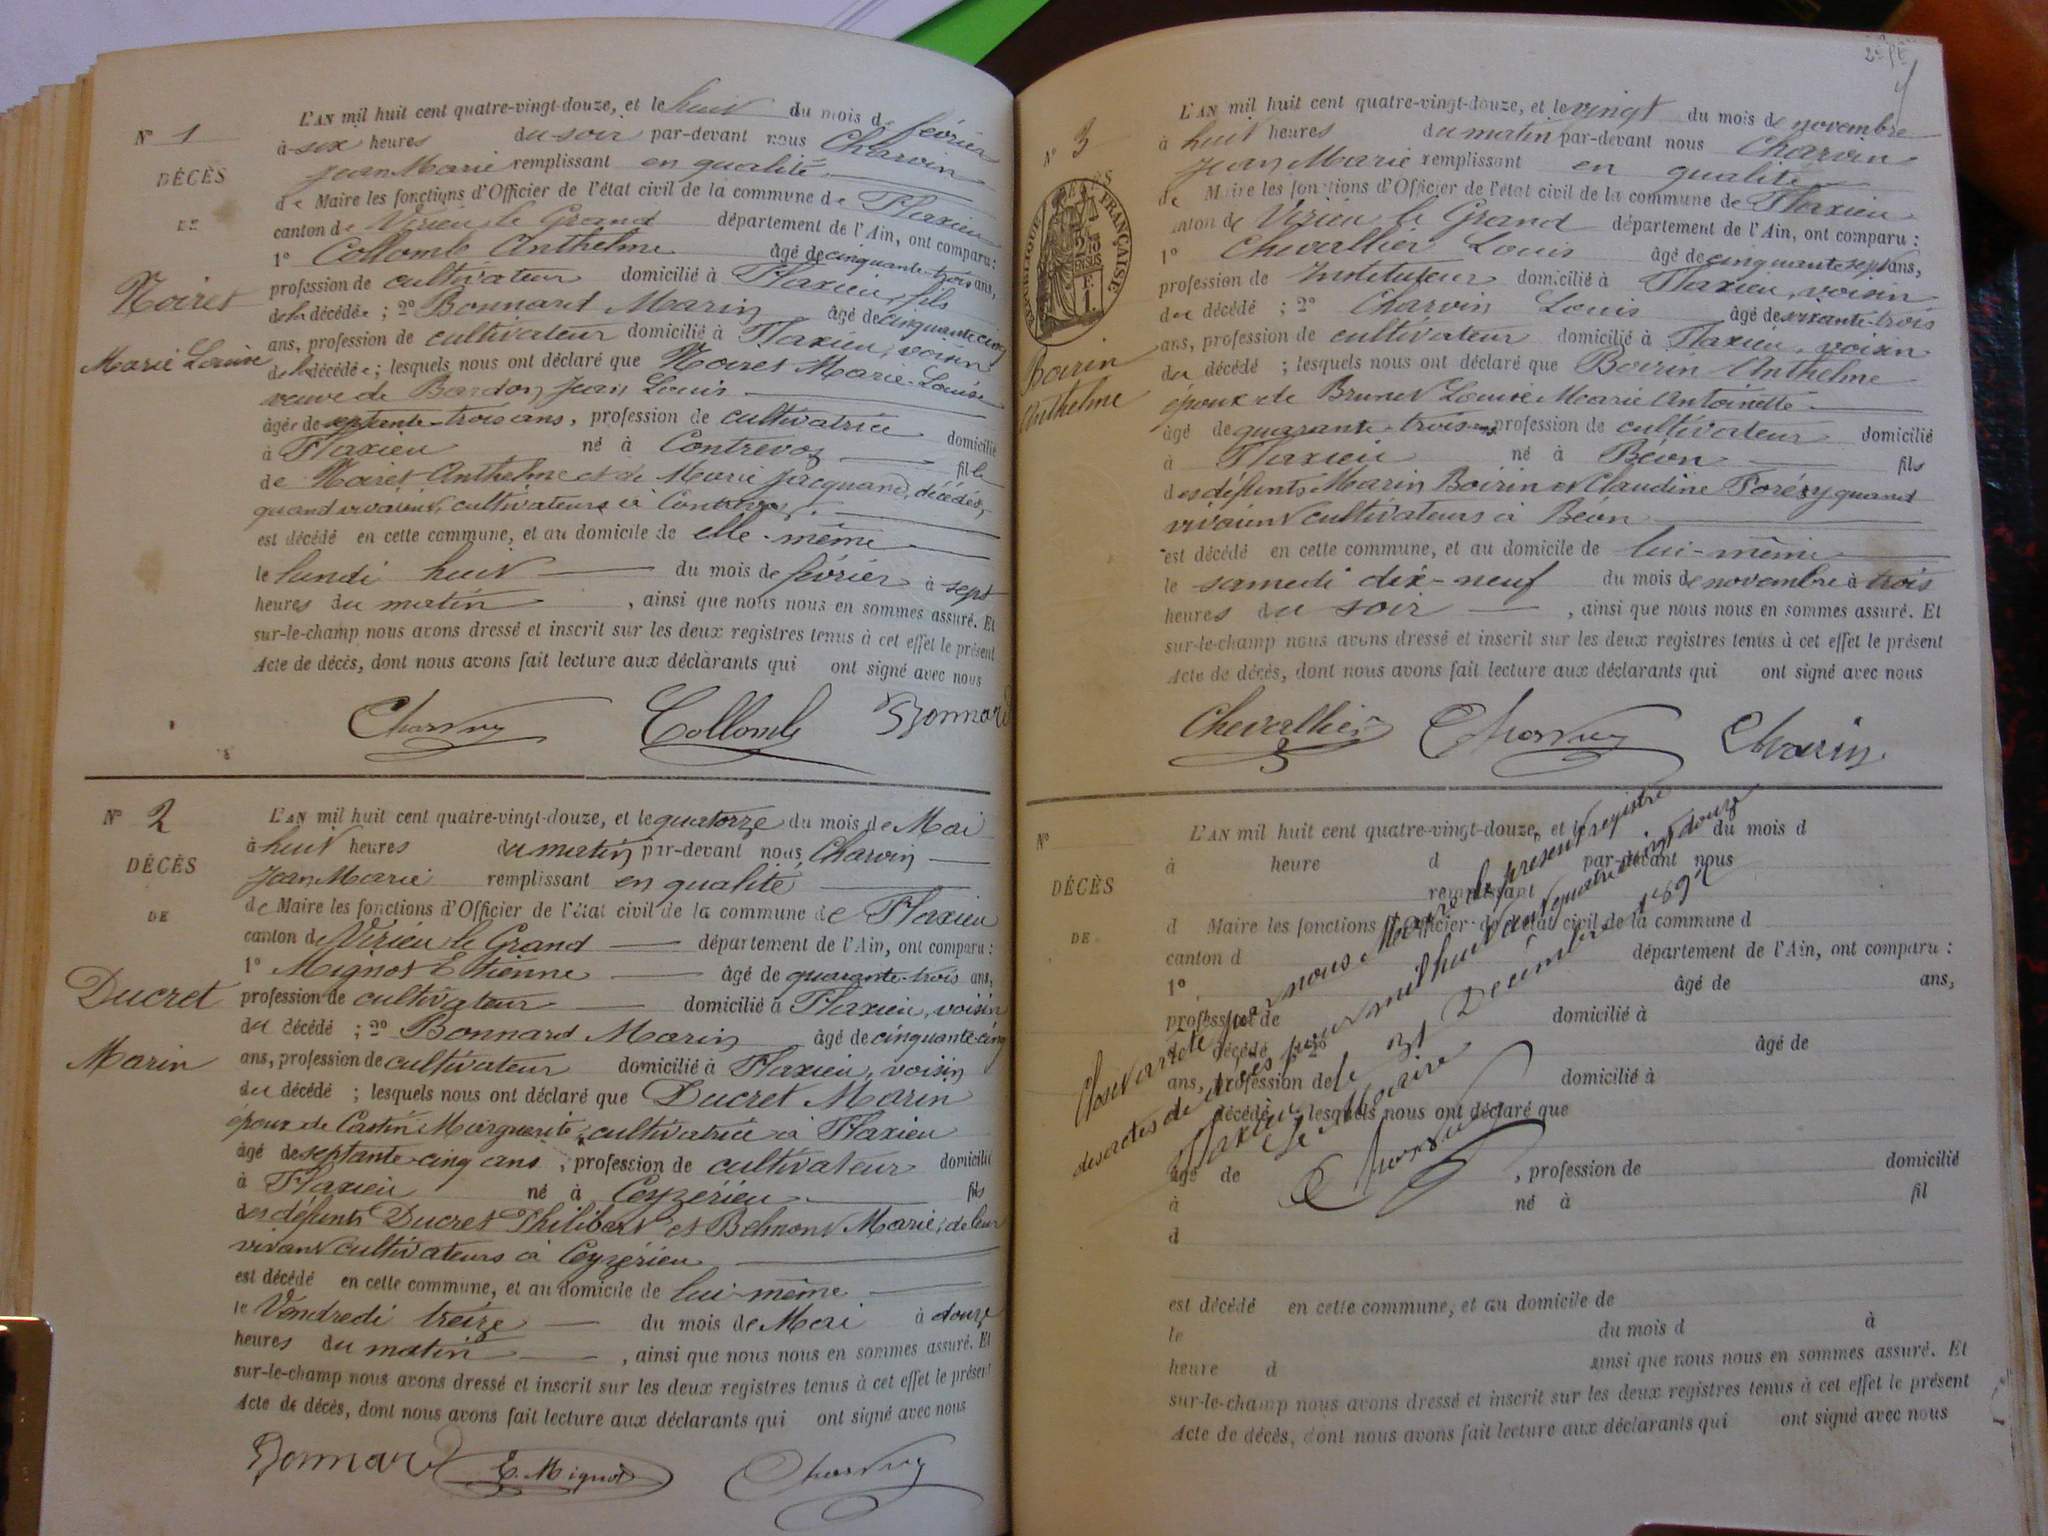 N° 1
DÉCÈS
DE
Noiret
Marie Louise
L'AN mil huit cent quatre-vingt-douze, et le huit du mois de février
à six heures du soir par-devant nous Charvin
Jean Marie remplissant en qualité
de Maire les fonctions d'Officier de l'état civil de la commune de Flaxieu
canton de Virieu le Grand département de l'Ain, ont comparu :
1° Collomb Anthelme âgé de cinquante-trois ans,
profession de cultivateur domicilié à Flaxieu, fils
de la décédée ; 2° Bonnard Marin âgé de cinquante cinq
ans, profession de cultivateur domicilié à Flaxieu, voisin
de la décédée ; lesquels nous ont déclaré que Noiret Marie-Louise
veuve de Bardon Jean Louis
âgée de septante-trois ans, profession de cultivatrice domicilié
à Flaxieu né à Contrevoz fille
de Noiret Anthelme et de Marie Jacquand, décédés,
quand vivaient, cultivateurs à Contrevoz.
est décédé en cette commune, et au domicile de elle-même
le lundi huit du mois de février à sept
heures du matin, ainsi que nous nous en sommes assuré. Et
sur-le-champ nous avons dressé et inscrit sur les deux registres tenus à cet effet le présent
Acte de décès, dont nous avons fait lecture aux déclarants qui ont signé avec nous
Charvin Collomb Bonnard
N° 2
DÉCÈS
DE
Ducret
Marin
L'AN mil huit cent quatre-vingt-douze, et le quatorze du mois de Mai
à huit heures du matin par-devant nous Charvin
Jean Marie remplissant en qualité
de Maire les fonctions d'Officier de l'état civil de la commune de Flaxieu
canton de Virieu le Grand département de l'Ain, ont comparu :
1° Mignot Etienne âgé de quarante-trois ans,
profession de cultivateur domicilié à Flaxieu, voisin
du décédé ; 2° Bonnard Marin âgé de cinquante-cinq
ans, profession de cultivateur domicilié à Flaxieu, voisin
du décédé ; lesquels nous ont déclaré que Ducret Marin
époux de Castin Marguerite, cultivatrice à Flaxieu
âgé de septante-cinq ans, profession de cultivateur domicilié
à Flaxieu né à Ceyzérieu fils
des défunts Ducret Philibert et Belmont Marie, de leur
vivant cultivateurs à Ceyzérieu
est décédé en cette commune, et au domicile de lui-même
le Vendredi treize du mois de Mai à douze
heures du matin, ainsi que nous nous en sommes assuré. Et
sur-le-champ nous avons dressé et inscrit sur les deux registres tenus à cet effet le présent
Acte de décès, dont nous avons fait lecture aux déclarants qui ont signé avec nous
Bonnard E. Mignot Charvin
N° 3
RÉPUBLIQUE FRANÇAISE
Boirin
Anthelme
L'AN mil huit cent quatre-vingt-douze, et le vingt du mois de novembre
à huit heures du matin par-devant nous Charvin
Jean Marie remplissant en qualité
de Maire les fonctions d'Officier de l'état civil de la commune de Flaxieu
canton de Virieu le Grand département de l'Ain, ont comparu :
1° Chevallier Louis âgé de cinquante sept ans,
profession de Instituteur domicilié à Flaxieu, voisin
du décédé ; 2° Charvin Louis âgé de soixante-trois
ans, profession de cultivateur domicilié à Flaxieu, voisin
du décédé ; lesquels nous ont déclaré que Boirin Anthelme
époux de Brunet Louise Marie Antoinette
âgé de quarante-trois ans profession de cultivateur domicilié
à Flaxieu né à Béon fils
des défunts Marin Boirin et Claudine Forésy quand
vivaient cultivateurs à Béon
est décédé en cette commune, et au domicile de lui-même
le samedi dix-neuf du mois de novembre à trois
heures du soir, ainsi que nous nous en sommes assuré. Et
sur-le-champ nous avons dressé et inscrit sur les deux registres tenus à cet effet le présent
Acte de décès, dont nous avons fait lecture aux déclarants qui ont signé avec nous
Chevallier Charvin Charvin
N°
DÉCÈS
DE
L'AN mil huit cent quatre-vingt-douze, et le du mois d
à heure d par-devant nous
remplissant
d Maire les fonctions d'Officier de l'état civil de la commune d
canton d département de l'Ain, ont comparu :
1° âgé de ans,
profession de domicilié à
d décédé ; 2° âgé de
ans, profession de domicilié à
d décédé ; lesquels nous ont déclaré que
âgé de , profession de domicilié
à né à fil
d
est décédé en cette commune, et au domicile de
le du mois d à
heure d ainsi que nous nous en sommes assuré. Et
sur-le-champ nous avons dressé et inscrit sur les deux registres tenus à cet effet le présent
Acte de décès, dont nous avons fait lecture aux déclarants qui ont signé avec nous
Clos et arrêté par nous Maire le présent registre
des actes de décès pour mil huit cent quatre vingt douze
Flaxieu le 31 Décembre 1892
Le Maire
Charvin